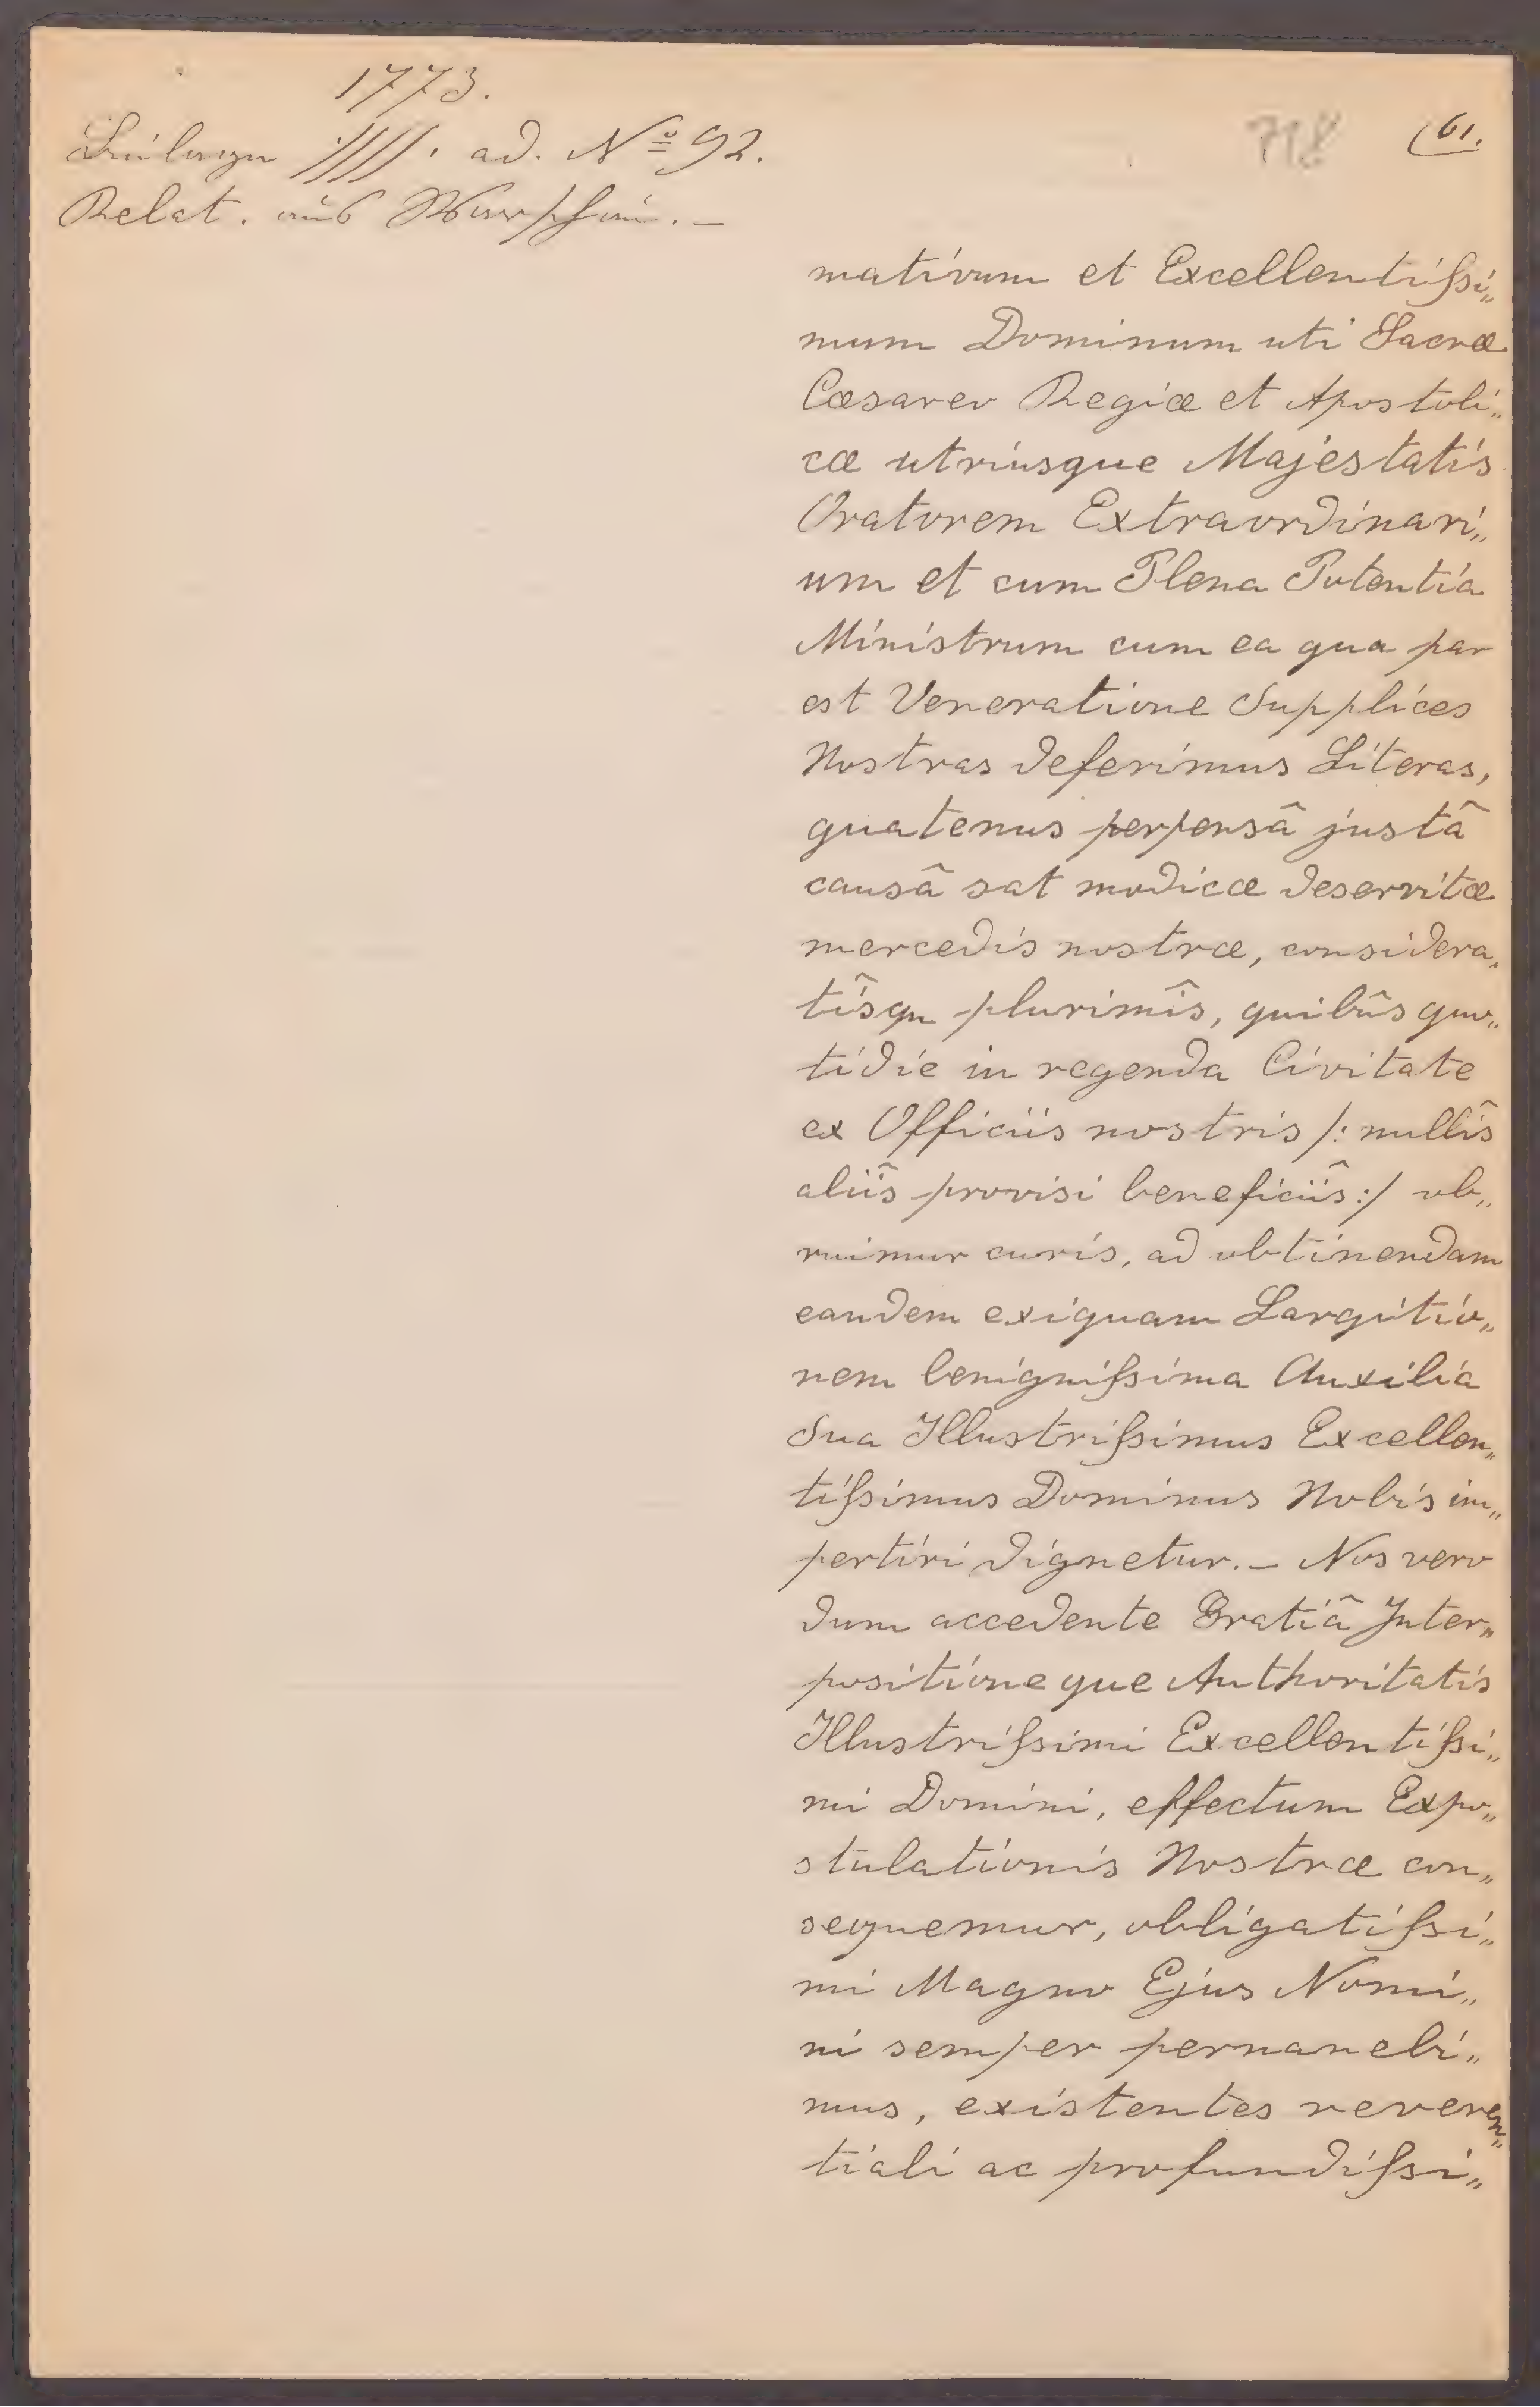 1773.
Beilagen ://// ad. Nº 92.
Relat. aus Warschau. –
718
61.
mativum et Excellentißi„
mum Dominum uti Sacræ
Cæsareo Regiæ et Apostoli„
cæ utriusque Majestatis
Oratorem Extraordinari„
um et cum Plena Potentia
Ministrum cum ea qua par
est Veneratione Supplices
Nostras deferimus Literas,
quatenus perpensâ justâ
causâ sat modicæ deservitæ
mercedis nostræ, considera„
tîsqu plurimîs, quibûs quo„
tidie in regenda Civitate
ex Officiis nostris /: nullîs
aliîs provisi beneficiîs :/ ob„
ruimur curis, ad obtinendam
eandem exiguam Largitio„
nem benignißima Auxilia
Sua Illustrißimus Excellen„
tißimus Dominus Nobis im„
pertiri dignetur. – Nos vero
dum accedente Gratiâ Inter„
positione que Authoritatis
Illustrißimi Excellentißi„
mi Domini, effectum Expo„
stulationis Nostræ con„
sequemur, obligatißi„
mi Magno Ejus Nomi„
ni semper permanebi„
mus, existentes reveren„
tiali ac profundißi„